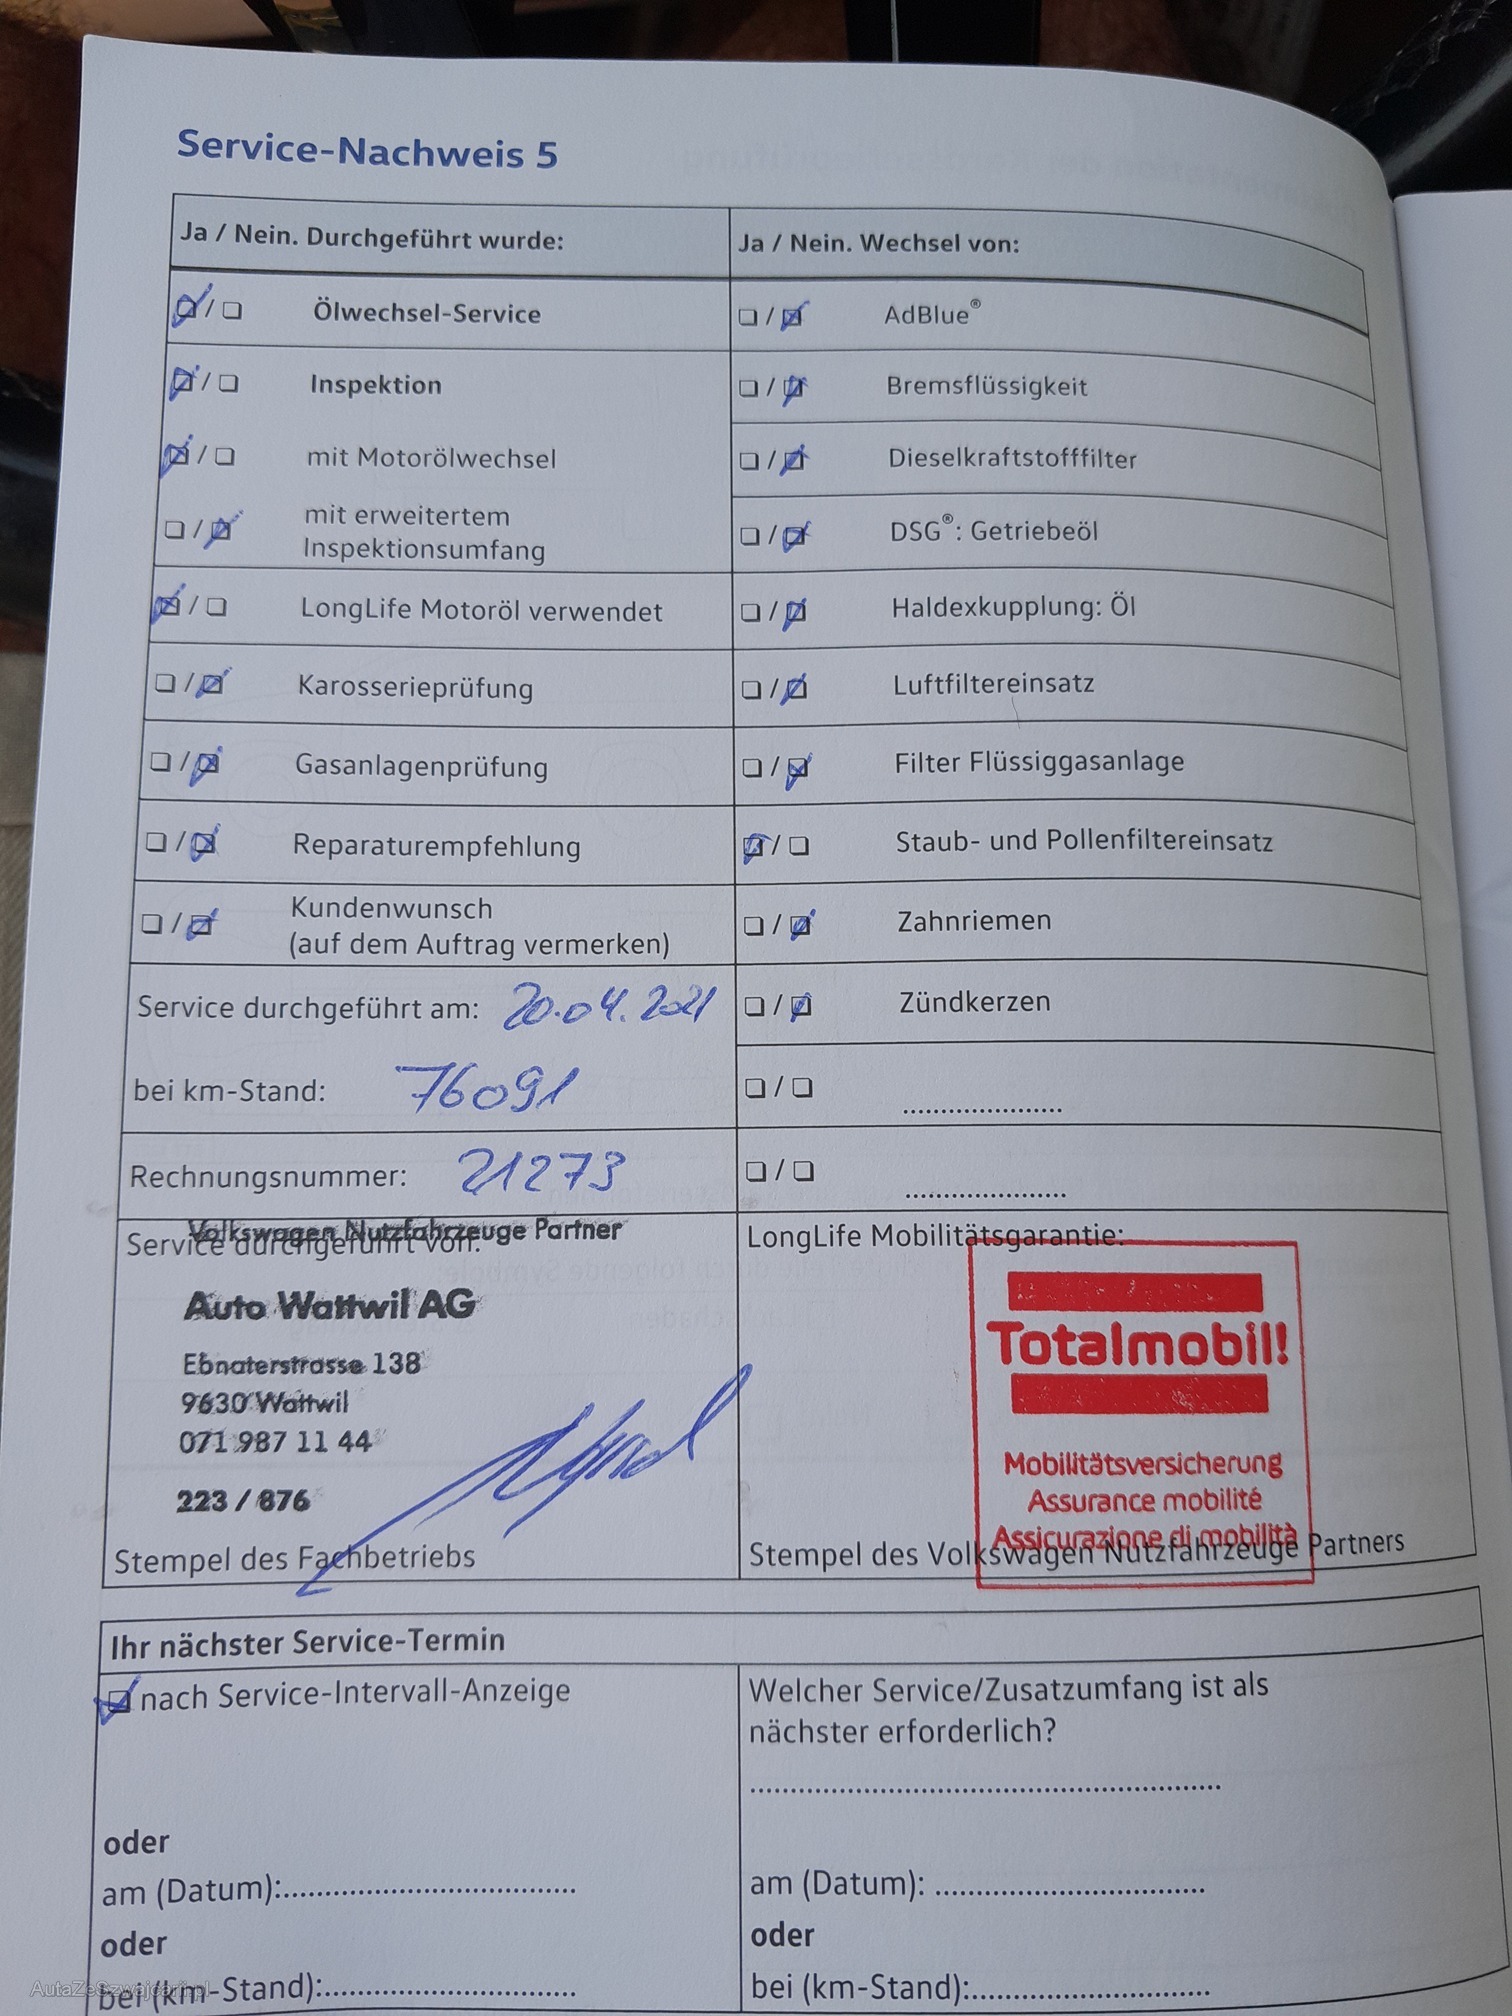 Service-Nachweis 5
Ja / Nein. Durchgeführt wurde:
Ölwechsel-Service
Inspektion
mit Motorölwechsel
mit erweitertem
Inspektionsumfang
LongLife Motoröl verwendet
Karosserieprüfung
Gasanlagenprüfung
Reparaturempfehlung
Kundenwunsch
(auf dem Auftrag vermerken)
Service durchgeführt am: 20.04.2021
bei km-Stand: 76091
Rechnungsnummer: 21273
Ja / Nein. Wechsel von:
AdBlue®
Bremsflüssigkeit
Dieselkraftstofffilter
DSG®: Getriebeöl
Haldexkupplung: Öl
Luftfiltereinsatz
Filter Flüssiggasanlage
Staub- und Pollenfiltereinsatz
Zahnriemen
Zündkerzen
Volkswagen Nutzfahrzeuge Partner
Service durchgeführt von:
Auto Wattwil AG
Ebnaterstrasse 138
9630 Wattwil
071 987 11 44
223 / 876
Stempel des Fachbetriebs
LongLife Mobilitätsgarantie:
Totalmobil!
Mobilitätsversicherung
Assurance mobilité
Assicurazione di mobilità
Stempel des Volkswagen Nutzfahrzeuge Partners
Ihr nächster Service-Termin
nach Service-Intervall-Anzeige
oder
am (Datum):
oder
bei (km-Stand):
Welcher Service/Zusatzumfang ist als
nächster erforderlich?
am (Datum):
oder
bei (km-Stand):
AutaZeSzwajcarii.pl